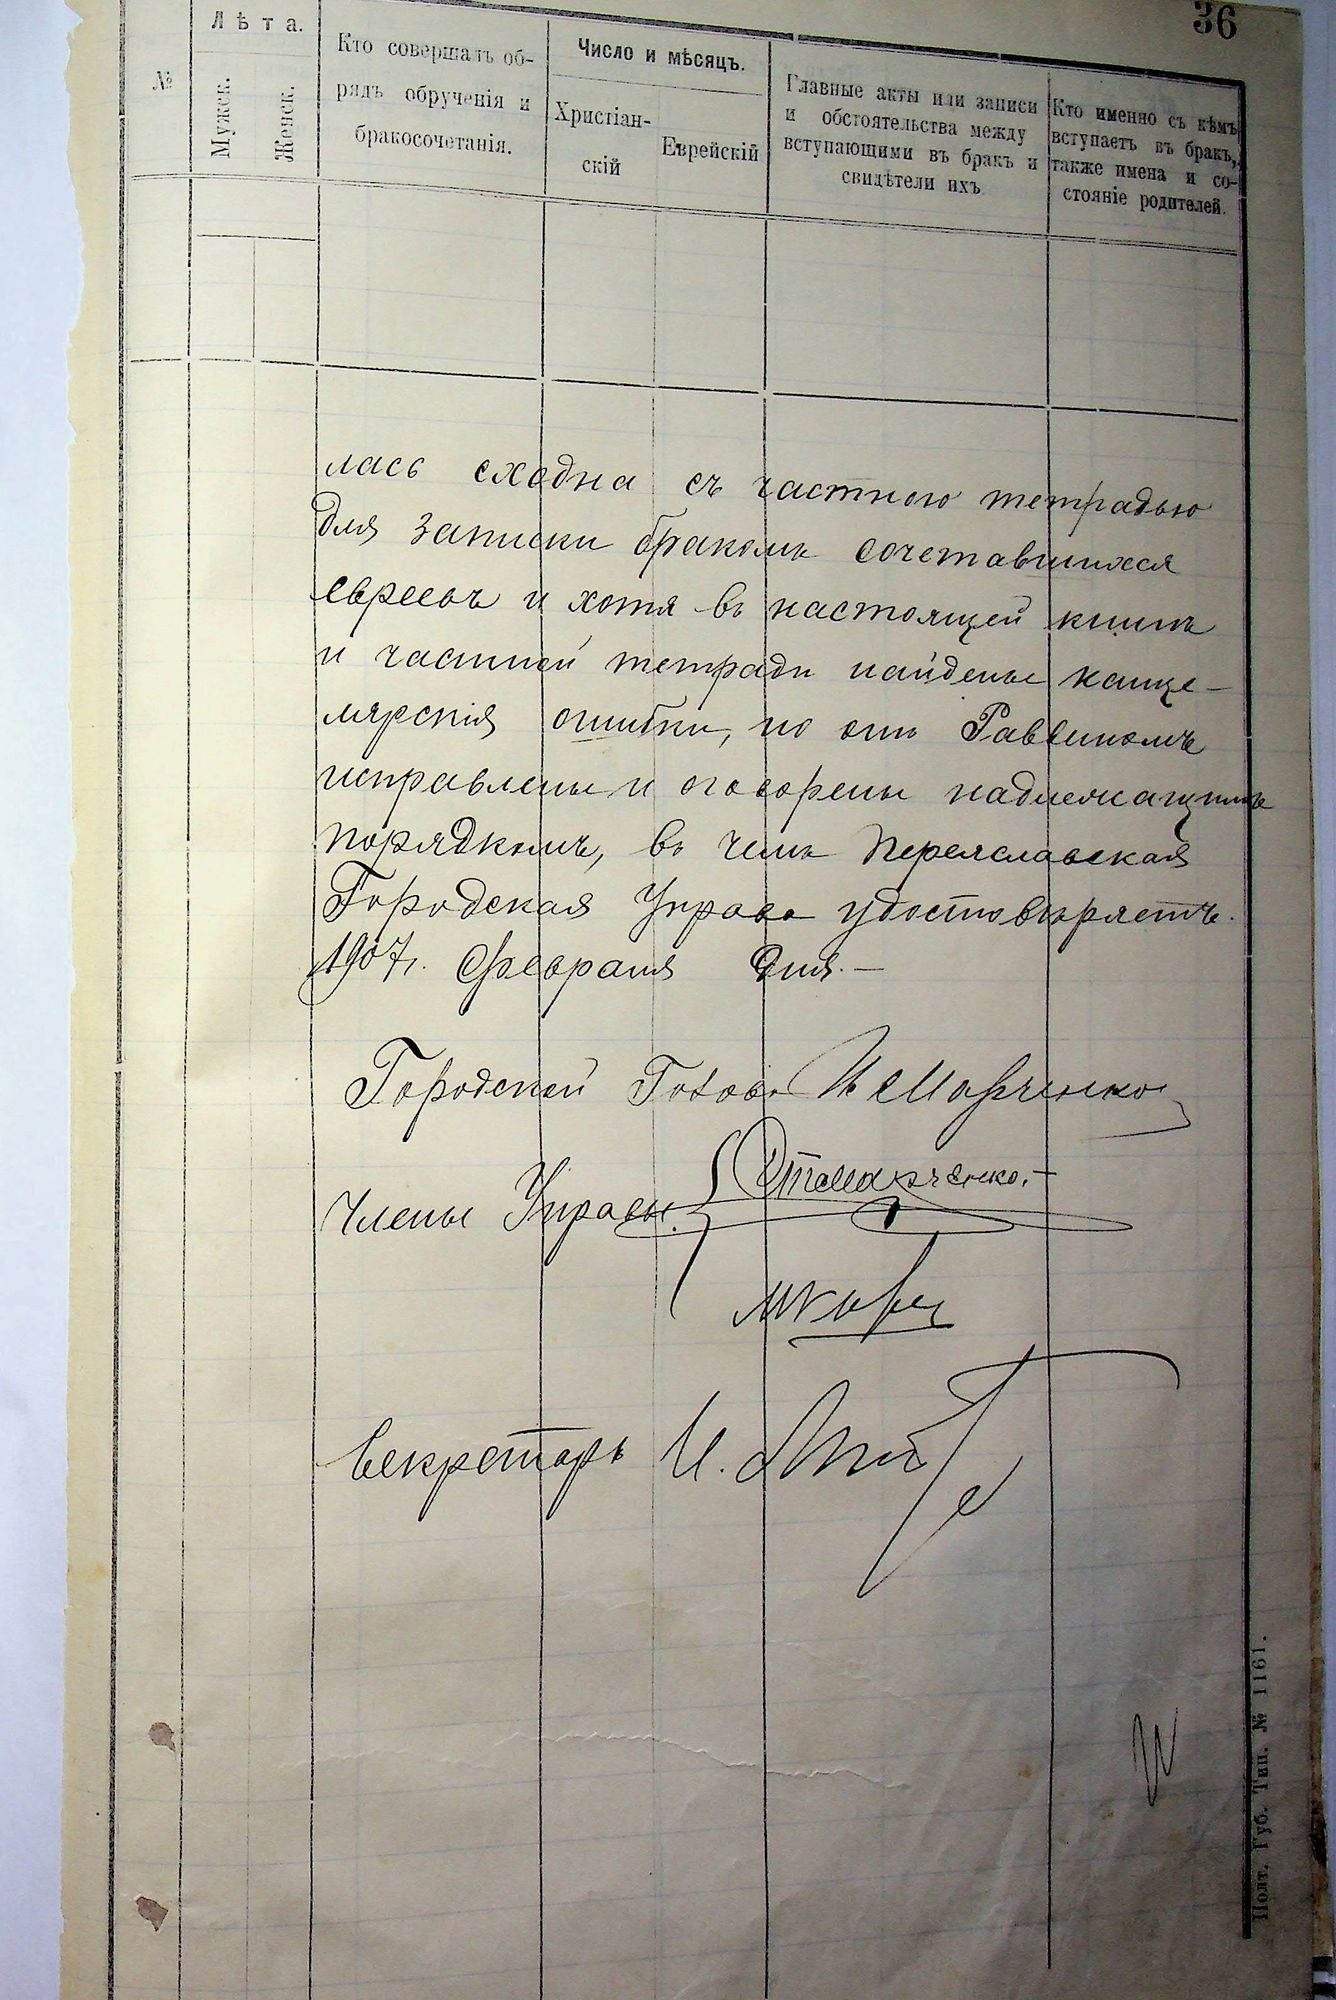 36
№
Лѣта.
Мужск.
Женск.
Кто совершалъ об-
рядъ обрученія и
бракосочетанія.
Число и мѣсяцъ.
Христіан-
скій
Еврейскій
Главные акты или записи
и обстоятельства между
вступающими въ бракъ и
свидѣтели ихъ
Кто именно съ кѣмъ
вступаетъ въ бракъ,
также имена и со-
стояніе родителей.
лась сходна съ частною тетрадью
для записки бракомъ сочетавшихся
евреевъ и хотя въ настоящей книгѣ
и частной тетради найдены канце-
лярскія ошибки, но они Раввиномъ
исправлены и оговорены надлежащимъ
порядкомъ, въ чемъ Переяславская
Городская Управа удостовѣряетъ.
1907 г. Февраля дня.—
Городской Голова И Марченко
Члены Управы Марченко.—
Секретарь И.
Полт. Губ. Тип. № 1161.